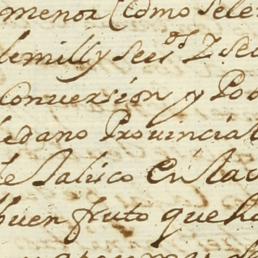 menor (como sele
de mill y seis.os 2 se
Conversion y Po
ledano Provincial
de Jalisco en la
buen fruto que ha